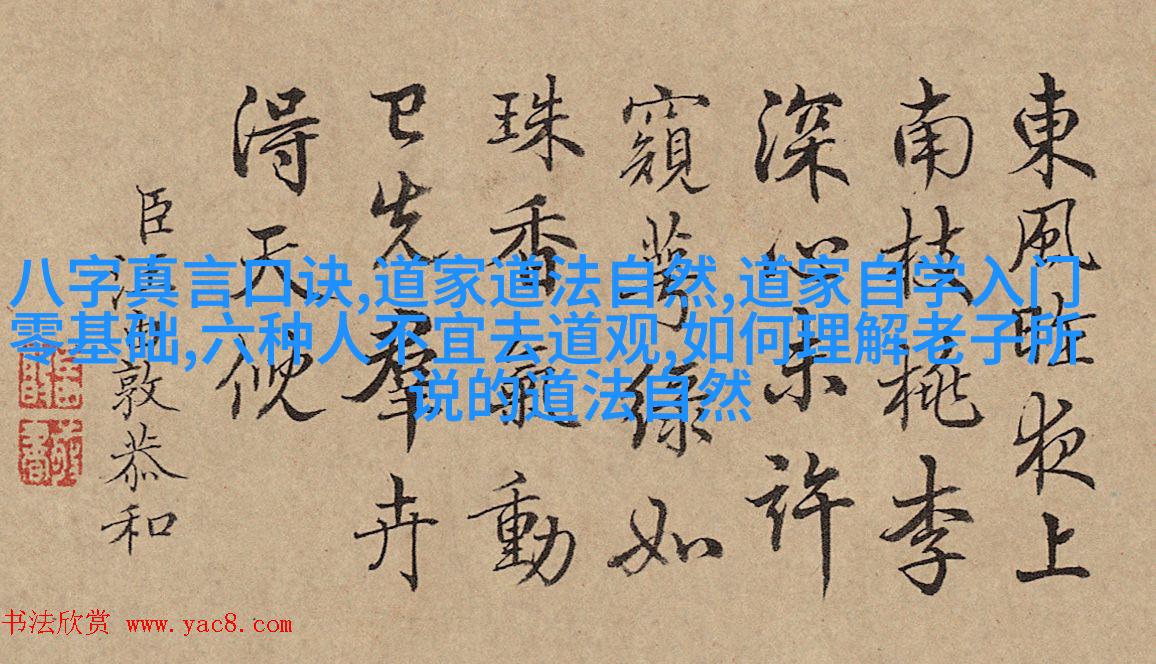 東風昨夜上
南枝桃李
深心未許
窺萼綠如
珠香氣動
已先羣卉
淂天倪
臣汪由敦恭和
八字真言口诀,道家道法自然,道家自学入门
零基础,六种人不宜去道观,如何理解老子所
说的道法自然
书法欣赏 www.yac8.com